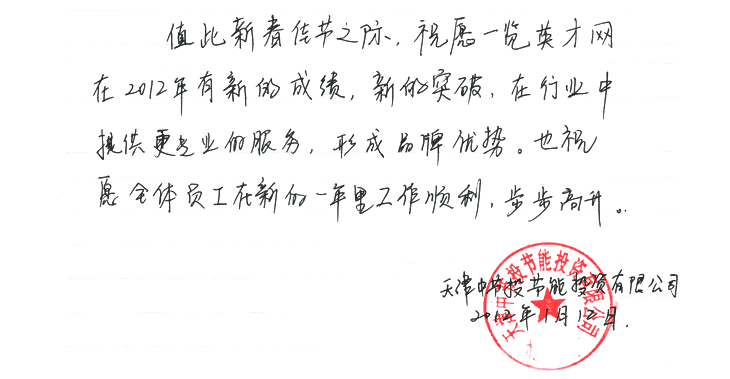 值此新春佳节之际，祝愿一览英才网
在2012年有新的成绩，新的突破，在行业中
提供更专业的服务，形成品牌优势。也祝
愿全体员工在新的一年里工作顺利，步步高升。
天津中节投节能投资有限公司
2012年1月12日.